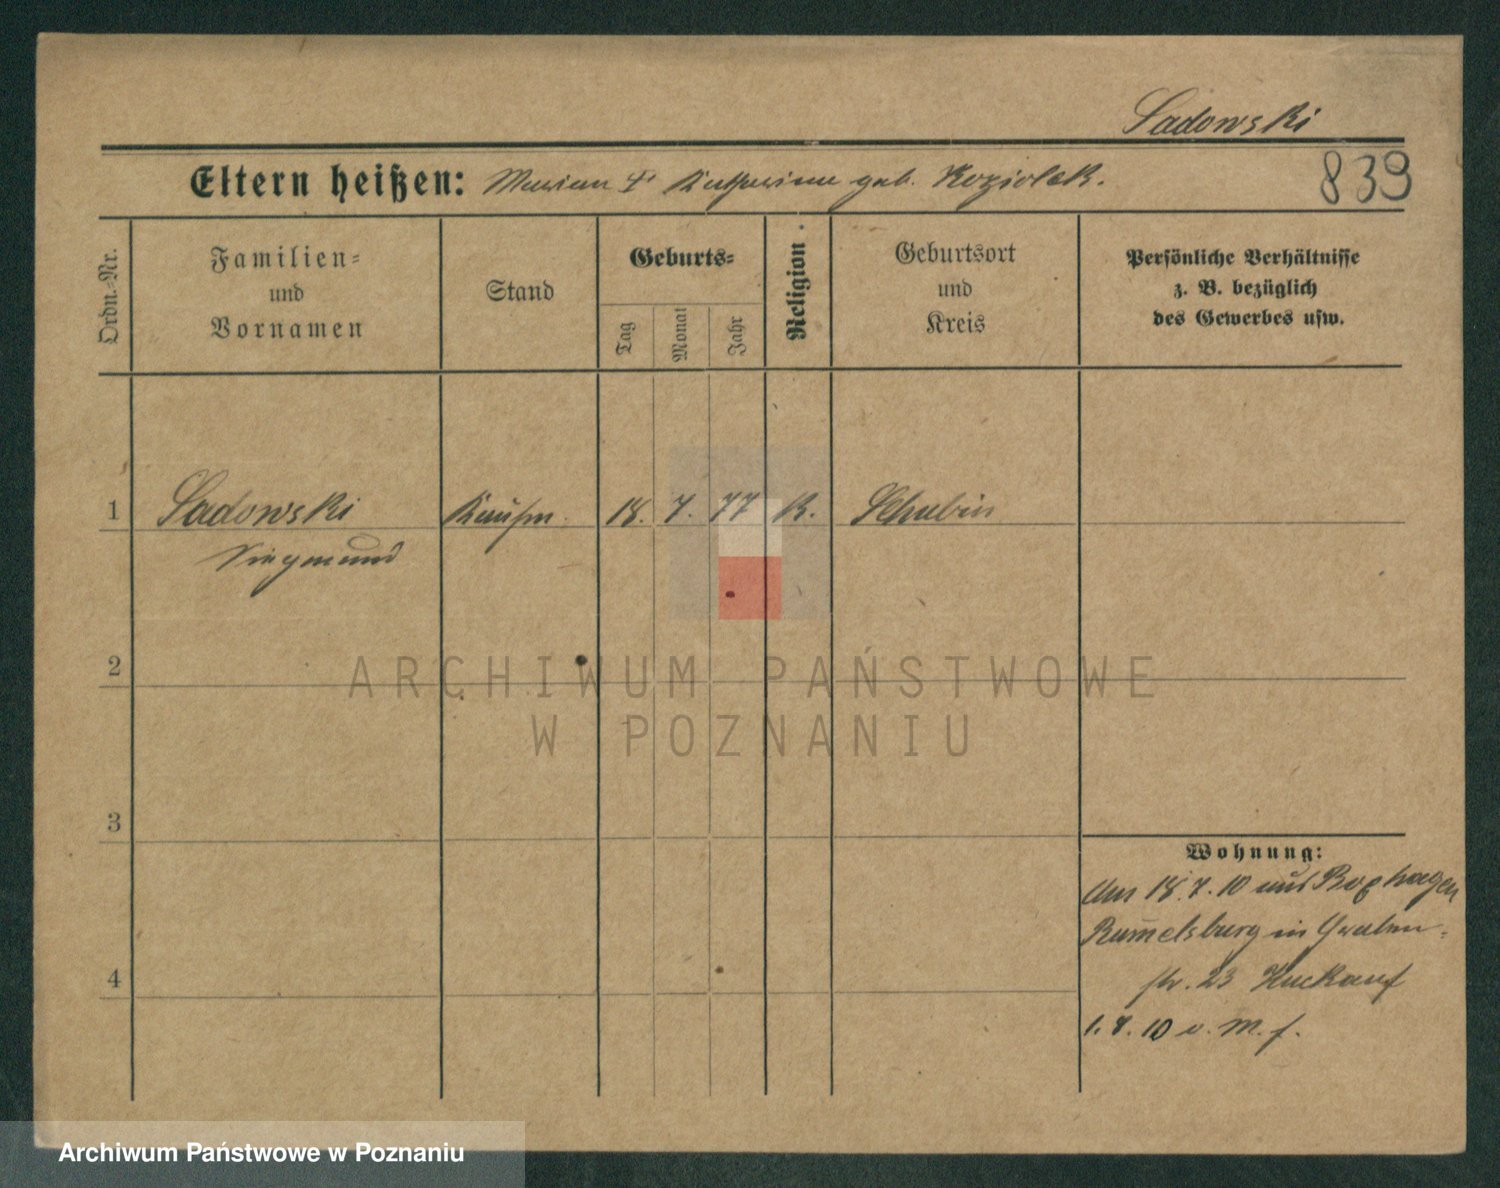 Sadowski
839
Eltern heißen: Marian & Katharina geb. Koziolek.
Ordn.-Nr.
Familien-
und
Vornamen
Stand
Geburts-
Tag
Monat
Jahr
Religion.
Geburtsort
und
Kreis
Persönliche Verhältnisse
z. B. bezüglich
des Gewerbes usw.
1 Sadowski Kaufm. 18. 7. 77 K. Schubin
Siegmund
2
3
4
Wohnung:
Am 18.7.10 aus
Rummelsburg in Graben-
str. 23
1.8.10
ARCHIWUM PAŃSTWOWE
W POZNANIU
Archiwum Państwowe w Poznaniu